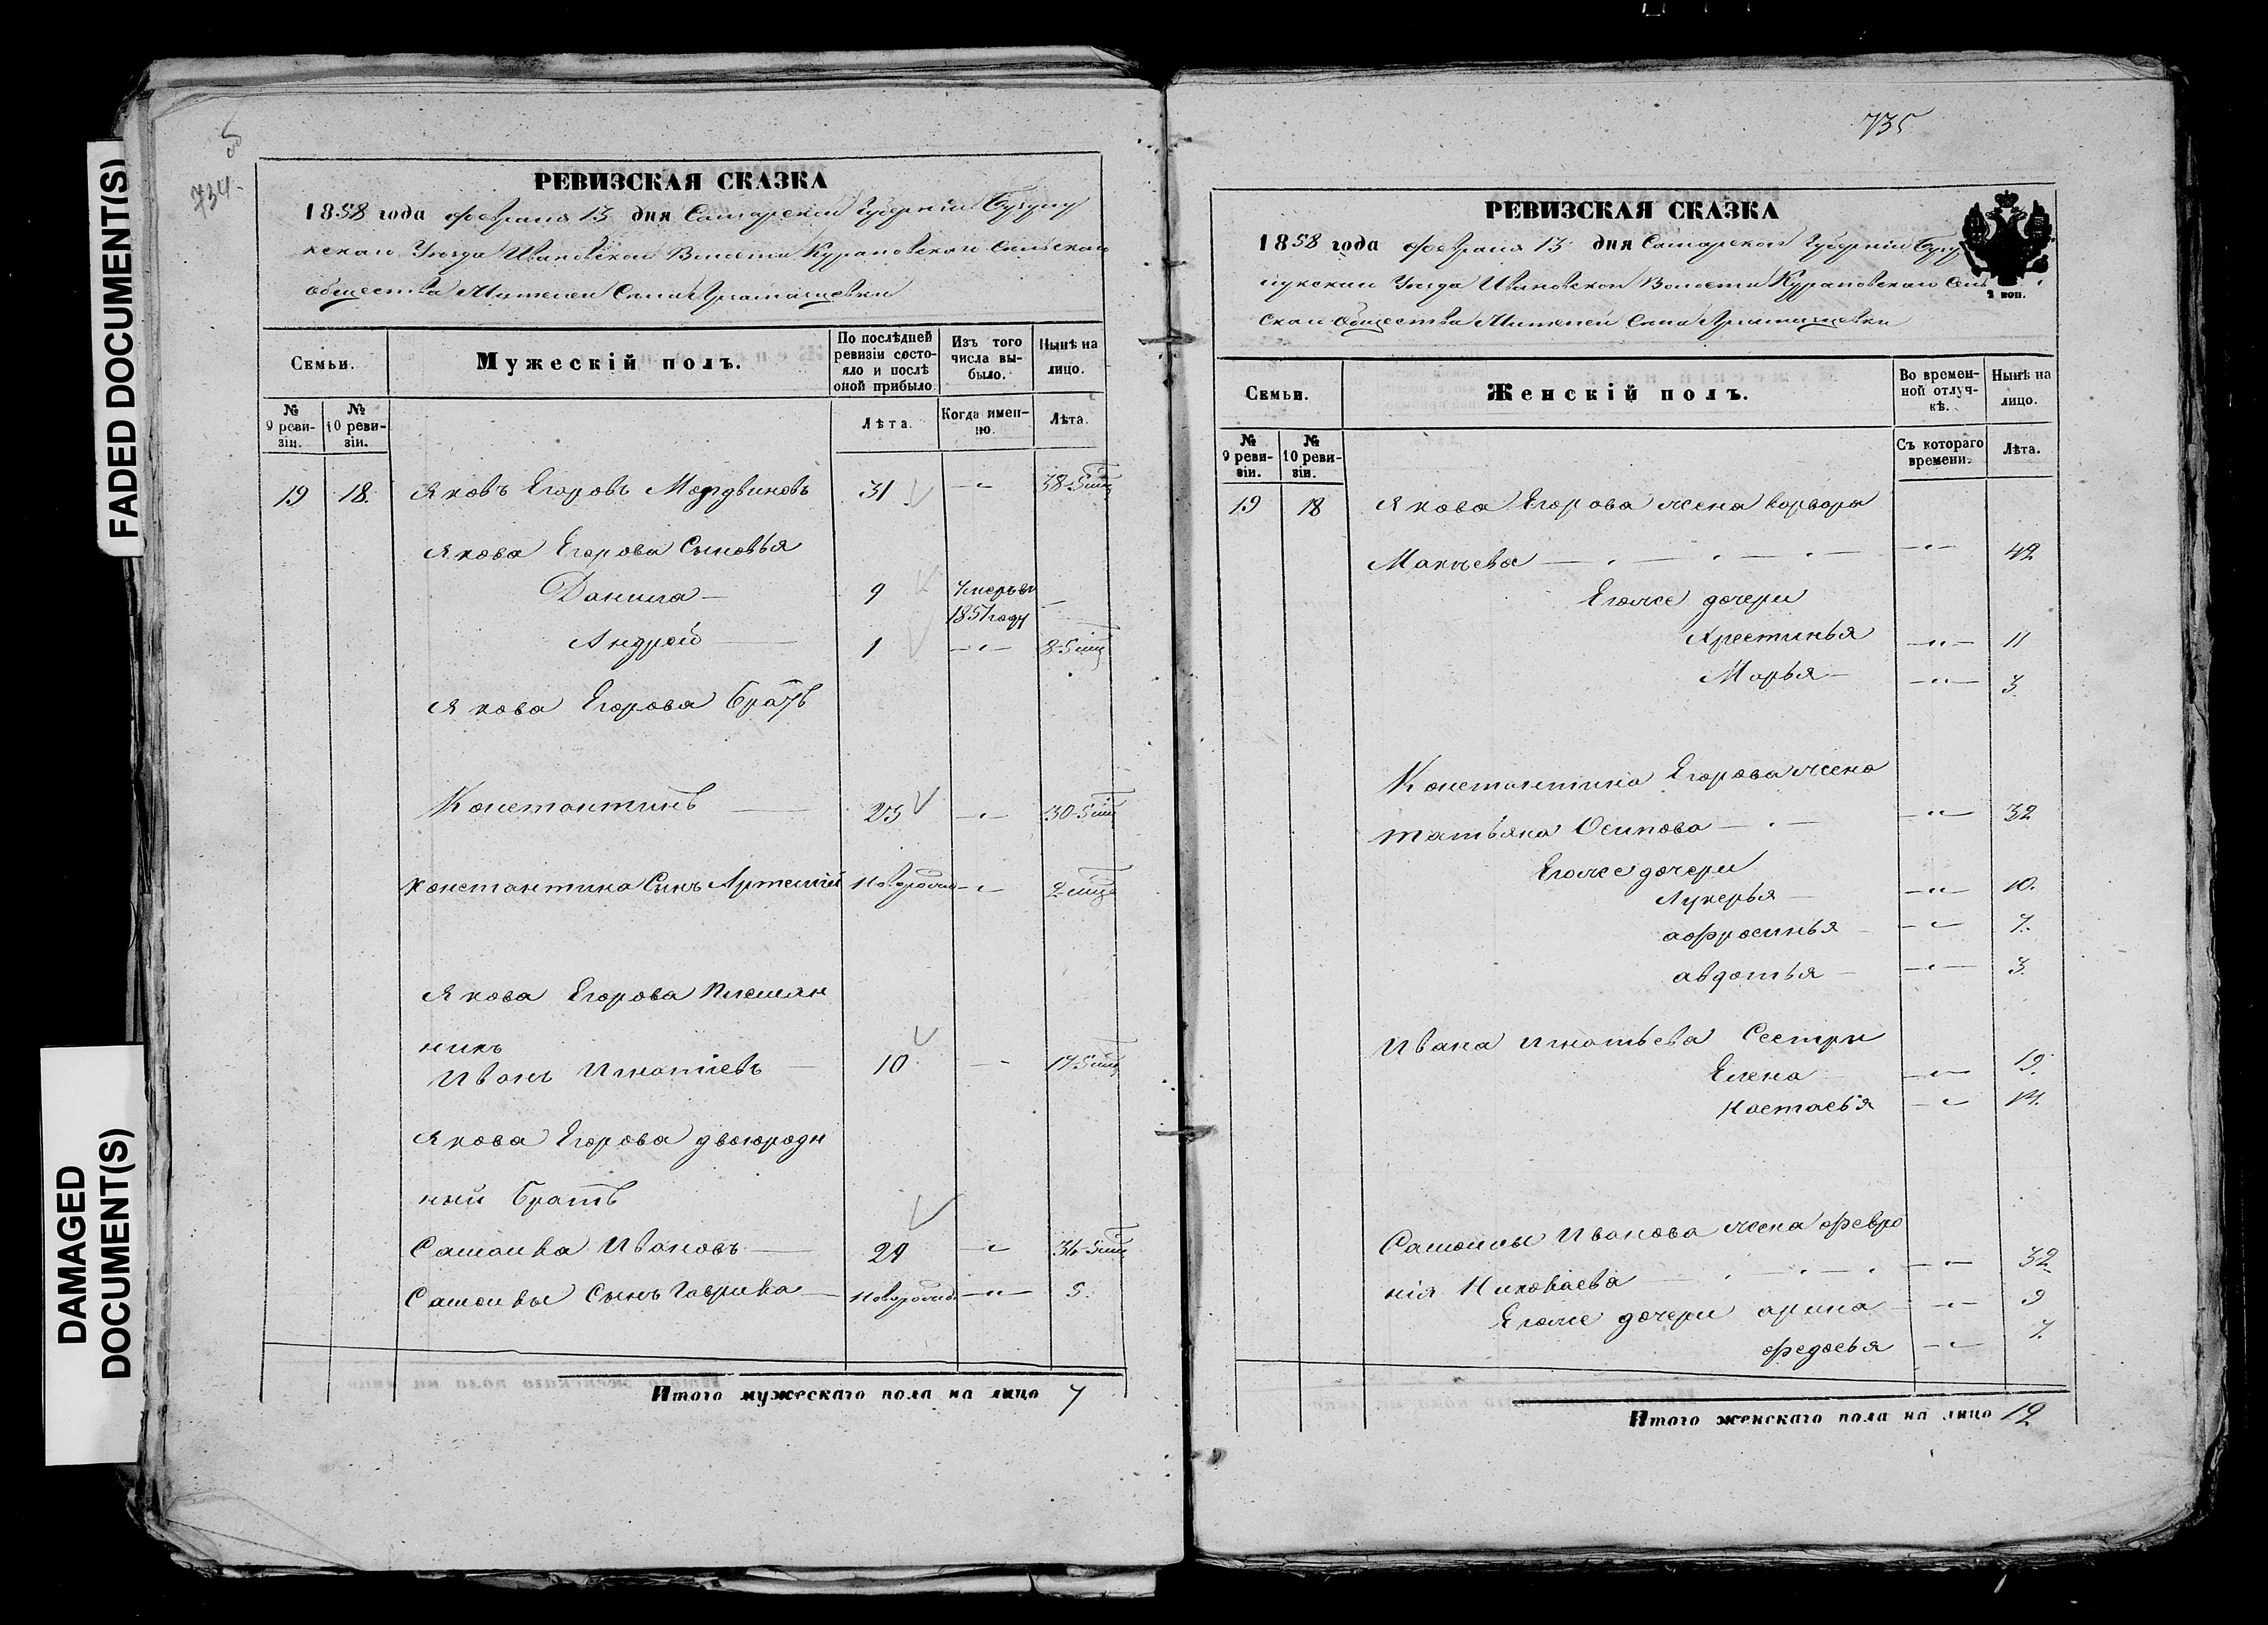 FADED DOCUMENT(S)
DAMAGED
DOCUMENT(S)
734.
РЕВИЗСКАЯ СКАЗКА
1858 года февраля 13 дня Самарской Губерніи Бузулу
кскаго Уезда Ивановской Волости Курановскаго Сельскаго
общества Жителей Села
Семьи.
Мужескій полъ.
По послѣдней ревизіи состояло и послѣ оной прибыло.
Изъ того числа выбыло.
Нынѣ на лицо.
№ 9 ревизіи.
№ 10 ревизіи.
Лѣта.
Когда именно.
Лѣта.
19 18. Яковъ Егоровъ Мордвиновъ 31 — " — 38-5 мц
Якова Егорова Сыновья
Данила — 9 Умеръ въ 1851 году —
Андрей — 1 — " — 8-5 мц
Якова Егорова Братъ
Константинъ — 23 — " — 30-5 мц
Константина Сынъ Артемій новорожд — " — 2 мца
Якова Егорова племян
никъ
Иванъ Игнатіевъ — 10 — 17-5 мц
Якова Егорова двоюродн
ный братъ
Самойла Ивановъ — 29 — " — 36-5 мц
Самойлы Сынъ Гаврила — новорожд. — " — 5.
Итого мужескаго пола на лицо 7
735
РЕВИЗСКАЯ СКАЗКА
1858 года февраля 13 дня Самарской Губерніи Бузу
лукскаго Уезда Ивановской Волости Курановскаго Сель
скаго общества Жителей Села
2 коп.
Семьи.
Женскій полъ.
Во временной отлучкѣ.
Нынѣ на лицо.
№ 9 ревизіи.
№ 10 ревизіи.
Съ котораго времени.
Лѣта.
19 18 Якова Егорова жена варвара
Макѣева — " — 42
Егоже дочери
Хрестинья — " — 11
Марья — — " — 3
Константина Егорова жена
татьяна Осипова — " — 32
Егоже дочери
Лукерья — — " — 10.
афросинья — " — 7.
авдотья — — " — 3.
Ивана Игнатьева Сестры
Елена — — " — 19.
настасья — " — 14.
Самойлы Иванова жена февро
нія Николаева — " — 32
Егоже дочери арина — " — 9
федосья — " — 7.
Итого женскаго пола на лицо 12